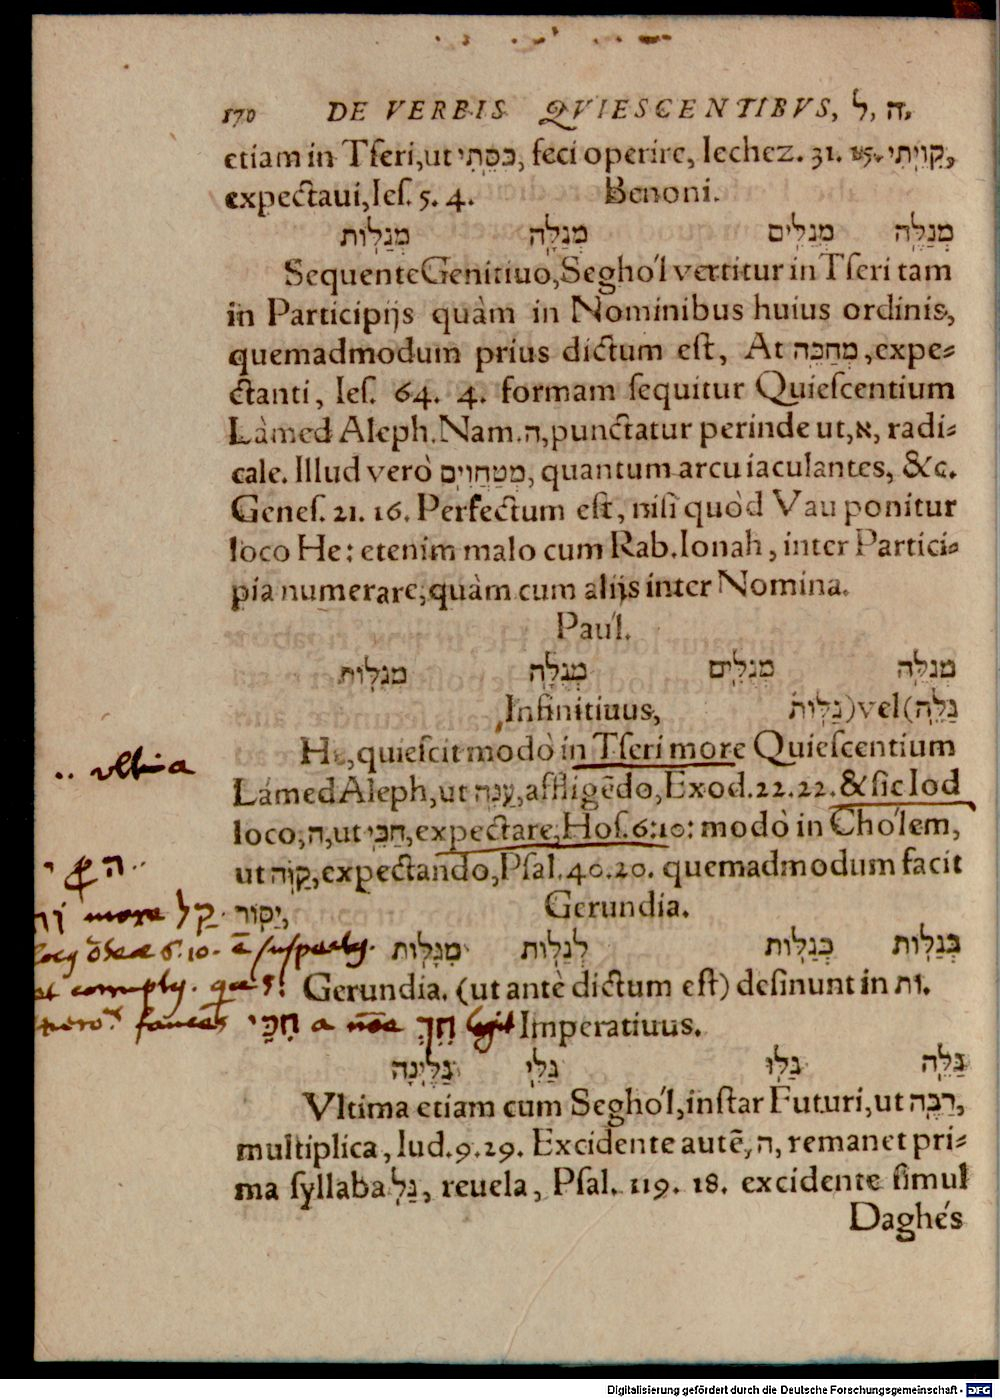 170 DE VERBIS QVIESCENTIBVS, ל, ה,
etiam in Tſeri, ut כִּסֵּתִי, feci operire, Iechez. 31. 15. קִוֵּיתִי,
expectaui, Ieſ. 5. 4. Benoni.
מְגַלֶּה מְגַלִּים מְגַלָּה מְגַלּוֹת
Sequente Genitiuo, Seghól vertitur in Tſeri tam
in Participijs quàm in Nominibus huius ordinis,
quemadmodum prius dictum eſt, At מְחַכֵּה, expe-
ctanti, Ieſ. 64. 4. formam ſequitur Quieſcentium
Làmed Aleph. Nam. ה, punctatur perinde ut, א, radi-
cale. Illud verò מְטַחֲוִים, quantum arcu iaculantes, &c.
Geneſ. 21. 16. Perfectum eſt, niſi quòd Vau ponitur
loco He: etenim malo cum Rab. Ionah, inter Partici-
pia numerare, quàm cum alijs inter Nomina.
Paúl.
מְגֻלֶּה מְגֻלִּים מְגֻלָּה מְגֻלּוֹת
Infinitiuus, גַּלּוֹת) vel (גַּלֵּה
He, quieſcit modò in Tſeri more Quieſcentium
.. ultima
Lámed Aleph, ut עַנֵּה, affligēdo, Exod. 22. 22. & ſic Iod
loco, ה, ut חַכֵּי, expectare, Hoſ. 6:10: modò in Chólem,
ut קַוֹּה, expectando, Pſal. 40. 20. quemadmodum facit
י ꝓ ה..
יַסּוֹר, Gerundia.
more קַל
בְּגַלּוֹת כְּגַלּוֹת לְגַלּוֹת מִגַּלּוֹת
6. 10.
Gerundia. (ut antè dictum eſt) deſinunt in וֹת.
Imperatiuus.
a חָכָּי
גַּלֵּה גַּלּוּ גַּלִּי גַּלֶּינָה
Vltima etiam cum Seghól, inſtar Futuri, ut רַבֶּה,
multiplica, Iud. 9. 29. Excidente autē, ה, remanet pri-
ma ſyllaba גַּל, reuela, Pſal. 119. 18. excidente ſimul
Daghés
Digitalisierung gefördert durch die Deutsche Forschungsgemeinschaft - DFG